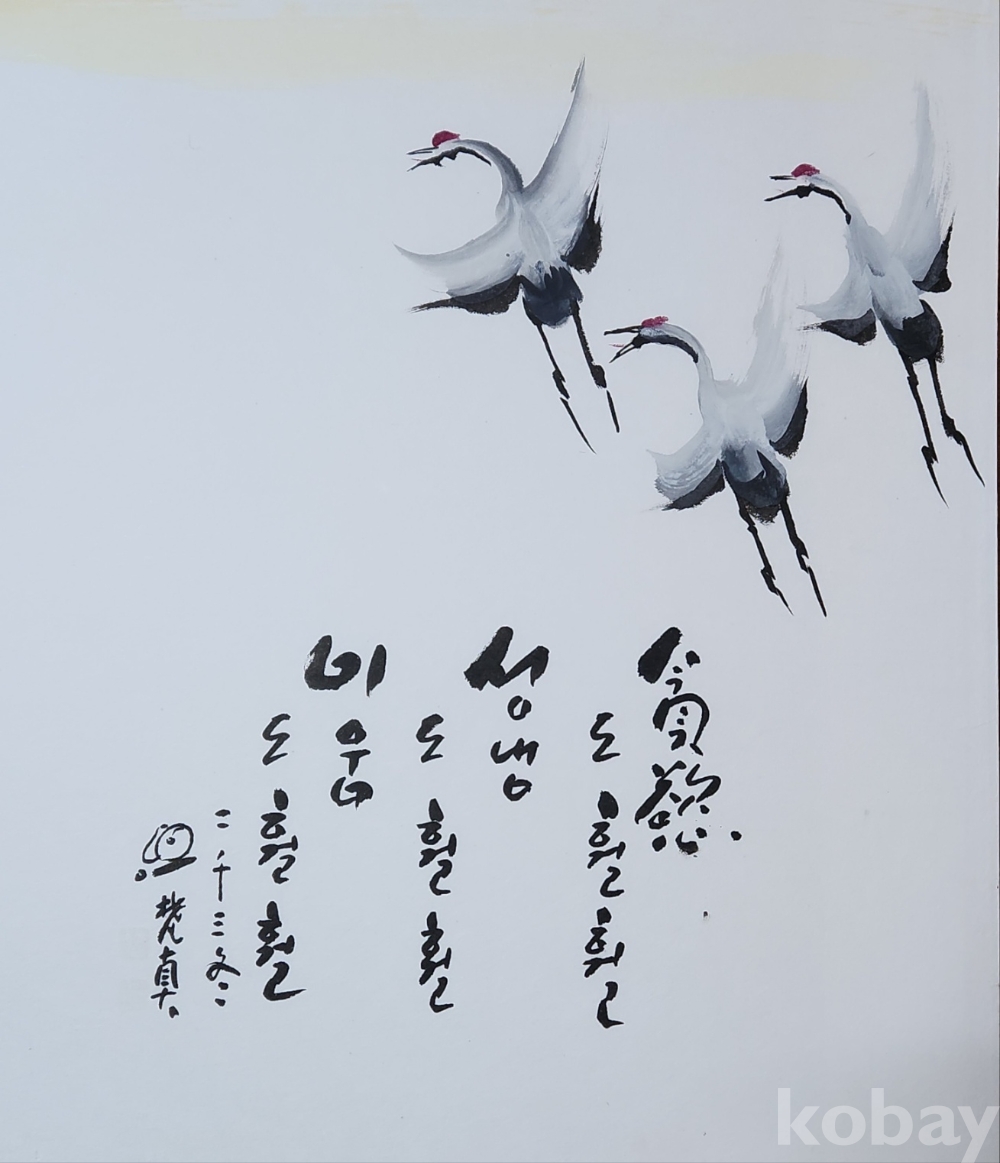 貪慾
도 훨훨
성냄
도 훨훨
미움
도 훨훨
二千三冬
kobay